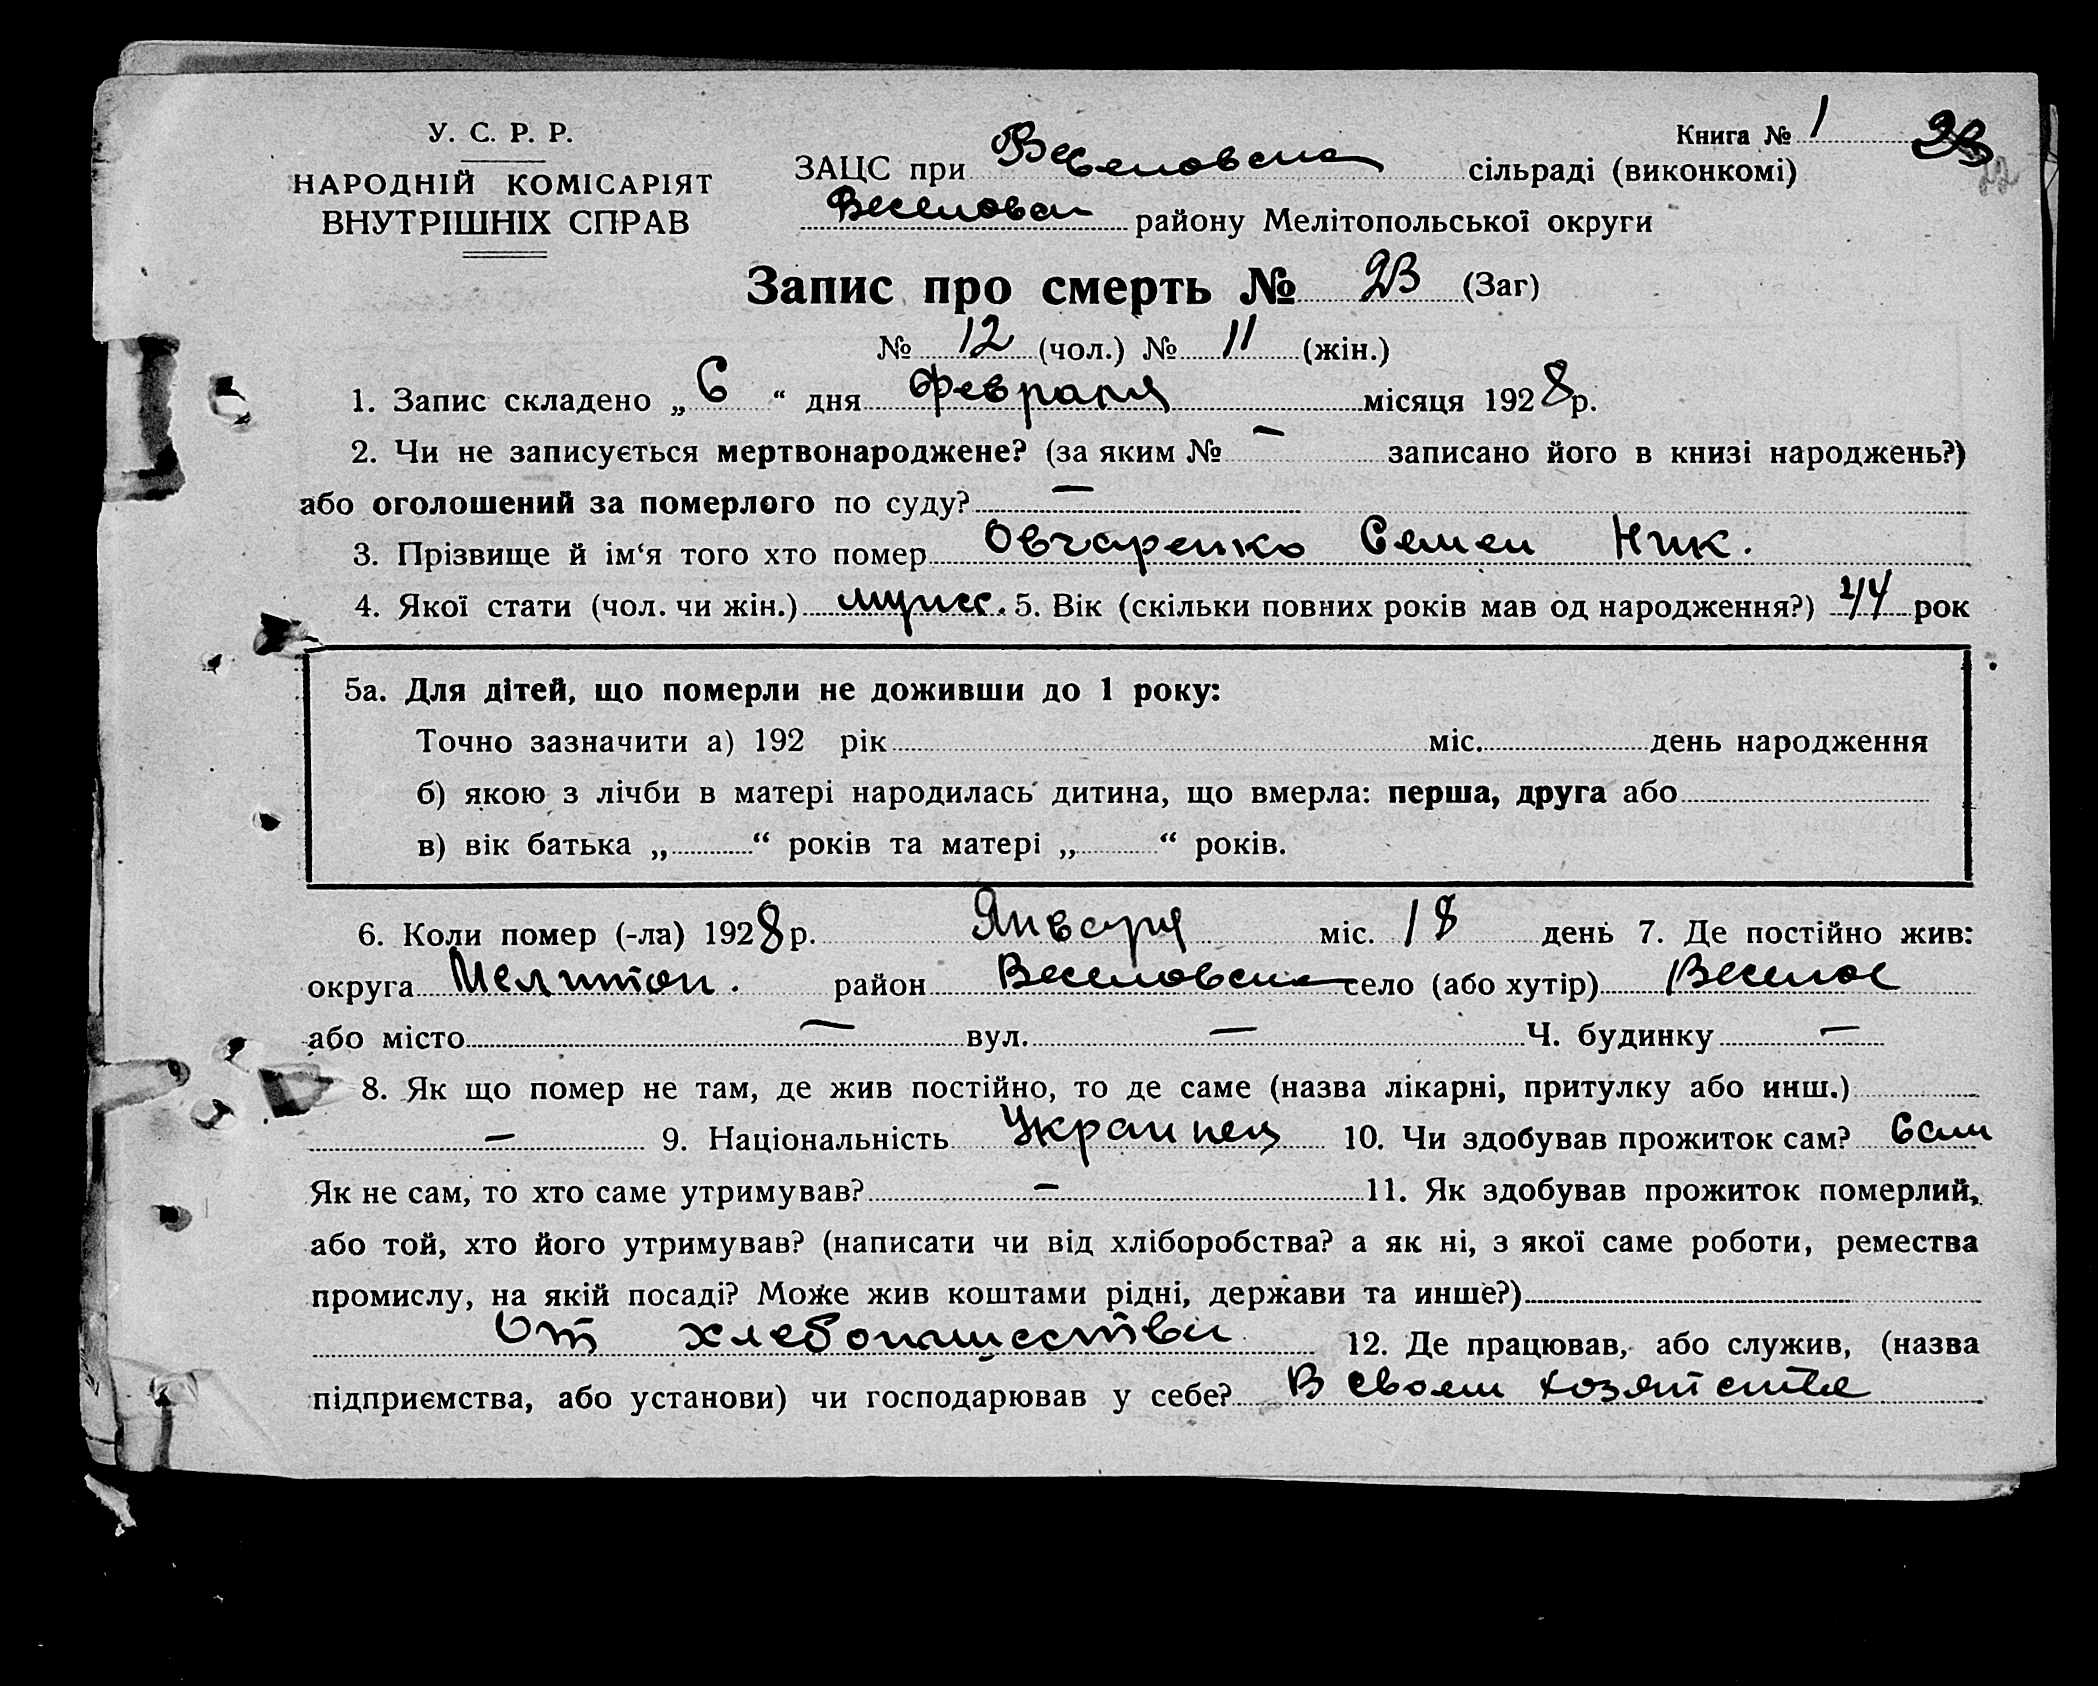 У. С. Р. Р.
НАРОДНІЙ КОМІСАРІЯТ
ВНУТРІШНІХ СПРАВ
Книга № 1 23
22
ЗАЦС при Веселовском сільраді (виконкомі)
Веселовск районy Мелітопольської округи
Запис про смерть № 23 (Заг)
№ 12 (чол.) № 11 (жін.)
1. Запис складено „ 6 “ дня Февраля місяця 1928 р.
2. Чи не записується мертвонароджене? (за яким № — записано його в книзі народжень?)
або оголошений за померлого по суду? —
3. Прізвище й ім‘я того хто помер Овчаренко Семен Ник.
4. Якої стати (чол. чи жін.) мужск. 5. Вік (скільки повних років мав од народження?) 44 рок
5а. Для дітей, що померли не доживши до 1 року:
Точно зазначити а) 192 рік міс. день народження
б) якою з лічби в матері народилась дитина, що вмерла: перша, друга або
в) вік батька „ “ років та матері „ “ років.
6. Коли помер (-ла) 1928 р. Января міс. 18 день 7. Де постійно жив:
округа Мелитоп. район Веселовск село (або хутір) Веселое
або місто — вул. — Ч. будинку —
8. Як що помер не там, де жив постійно, то де саме (назва лікарні, притулку або инш.)
— 9. Національність Украинец 10. Чи здобував прожиток сам? Сам
Як не сам, то хто саме утримував? — 11. Як здобував прожиток померлий,
або той, хто його утримував? (написати чи від хліборобства? а як ні, з якої саме роботи, ремества
промислу, на якій посаді? Може жив коштами рідні, держави та инше?)
От хлебопашества 12. Де працював, або служив, (назва
підприємства, або установи) чи господарював у себе? В своем хозяйстве